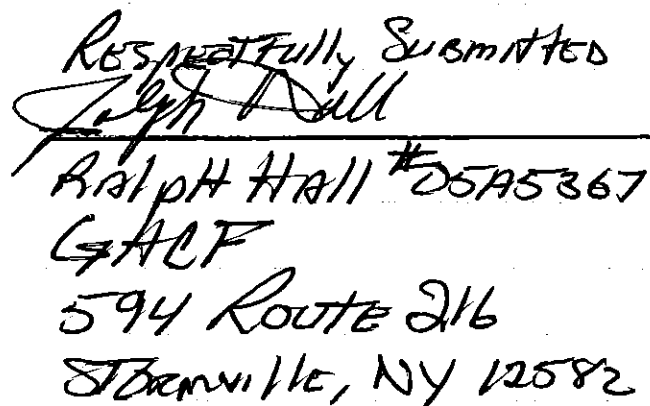 Respectfully Submitted
Ralph Hall
Ralph Hall #05A5367
GHCF
594 Route 216
Stormville, NY 12582